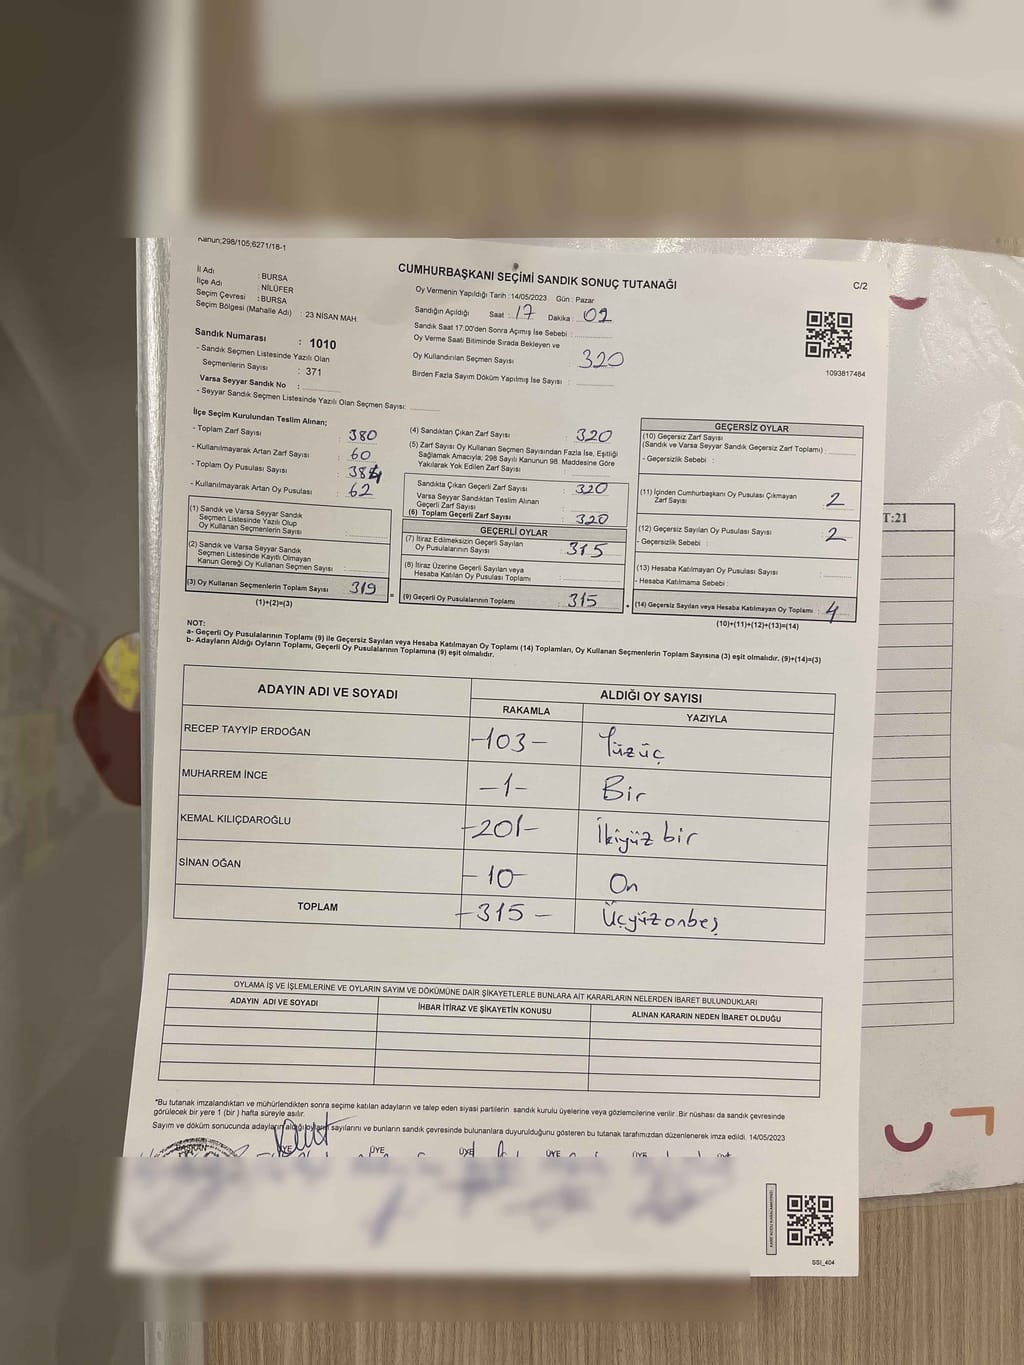 Kanun;298/105;6271/18-1
CUMHURBAŞKANI SEÇİMİ SANDIK SONUÇ TUTANAĞI
C/2
İl Adı : BURSA
İlçe Adı : NİLÜFER
Seçim Çevresi : BURSA
Seçim Bölgesi (Mahalle Adı) : 23 NİSAN MAH.
Oy Vermenin Yapıldığı Tarih : 14/05/2023 Gün : Pazar
Sandığın Açıldığı Saat : 17 Dakika : 02
Sandık Saat 17:00'den Sonra Açımış İse Sebebi :
Oy Verme Saati Bitiminde Sırada Bekleyen ve
Oy Kullandırılan Seçmen Sayısı 320
Birden Fazla Sayım Döküm Yapılmış İse Sayısı :
1093817484
Sandık Numarası : 1010
- Sandık Seçmen Listesinde Yazılı Olan
Seçmenlerin Sayısı : 371
Varsa Seyyar Sandık No :
- Seyyar Sandık Seçmen Listesinde Yazılı Olan Seçmen Sayısı:
İlçe Seçim Kurulundan Teslim Alınan;
- Toplam Zarf Sayısı : 380
- Kullanılmayarak Artan Zarf Sayısı : 60
- Toplam Oy Pusulası Sayısı : 384
- Kullanılmayarak Artan Oy Pusulası : 62
(1) Sandık ve Varsa Seyyar Sandık
Seçmen Listesinde Yazılı Olup
Oy Kullanan Seçmenlerin Sayısı :
(2) Sandık ve Varsa Seyyar Sandık
Seçmen Listesinde Kayıtlı Olmayan
Kanun Gereği Oy Kullanan Seçmen Sayısı :
(3) Oy Kullanan Seçmenlerin Toplam Sayısı : 319
(1)+(2)=(3)
=
(4) Sandıktan Çıkan Zarf Sayısı : 320
(5) Zarf Sayısı Oy Kullanan Seçmen Sayısından Fazla İse, Eşitliği
Sağlamak Amacıyla; 298 Sayılı Kanunun 98. Maddesine Göre
Yakılarak Yok Edilen Zarf Sayısı :
Sandıkta Çıkan Geçerli Zarf Sayısı : 320
Varsa Seyyar Sandıktan Teslim Alınan
Geçerli Zarf Sayısı :
(6) Toplam Geçerli Zarf Sayısı : 320
GEÇERLİ OYLAR
(7) İtiraz Edilmeksizin Geçerli Sayılan
Oy Pusulalarının Sayısı : 315
(8) İtiraz Üzerine Geçerli Sayılan veya
Hesaba Katılan Oy Pusulası Toplamı :
(9) Geçerli Oy Pusulalarının Toplamı : 315
+
GEÇERSİZ OYLAR
(10) Geçersiz Zarf Sayısı
(Sandık ve Varsa Seyyar Sandık Geçersiz Zarf Toplamı) :
- Geçersizlik Sebebi :
(11) İçinden Cumhurbaşkanı Oy Pusulası Çıkmayan
Zarf Sayısı : 2
(12) Geçersiz Sayılan Oy Pusulası Sayısı : 2
- Geçersizlik Sebebi :
(13) Hesaba Katılmayan Oy Pusulası Sayısı :
- Hesaba Katılmama Sebebi :
(14) Geçersiz Sayılan veya Hesaba Katılmayan Oy Toplamı : 4
(10)+(11)+(12)+(13)=(14)
NOT:
a- Geçerli Oy Pusulalarının Toplamı (9) ile Geçersiz Sayılan veya Hesaba Katılmayan Oy Toplamı (14) Toplamları, Oy Kullanan Seçmenlerin Toplam Sayısına (3) eşit olmalıdır. (9)+(14)=(3)
b- Adayların Aldığı Oyların Toplamı, Geçerli Oy Pusulalarının Toplamına (9) eşit olmalıdır.
ADAYIN ADI VE SOYADI
ALDIĞI OY SAYISI
RAKAMLA YAZIYLA
RECEP TAYYİP ERDOĞAN -103- Yüzüç
MUHARREM İNCE -1- Bir
KEMAL KILIÇDAROĞLU -201- İkiyüz bir
SİNAN OĞAN -10- On
TOPLAM -315- Üçyüzonbeş
OYLAMA İŞ VE İŞLEMLERİNE VE OYLARIN SAYIM VE DÖKÜMÜNE DAİR ŞİKAYETLERLE BUNLARA AİT KARARLARIN NELERDEN İBARET BULUNDUKLARI
ADAYIN ADI VE SOYADI İHBAR İTİRAZ VE ŞİKAYETİN KONUSU ALINAN KARARIN NEDEN İBARET OLDUĞU
"Bu tutanak imzalandıktan ve mühürlendikten sonra seçime katılan adayların ve talep eden siyasi partilerin sandık kurulu üyelerine veya gözlemcilerine verilir. Bir nüshası da sandık çevresinde
görülecek bir yere 1 (bir ) hafta süreyle asılır.
Sayım ve döküm sonucunda adayların aldığı oyların sayılarını ve bunların sandık çevresinde bulunanlara duyurulduğunu gösteren bu tutanak tarafımızdan düzenlenerek imza edildi. 14/05/2023
BAŞKAN ÜYE ÜYE ÜYE ÜYE ÜYE
SSI_404
T:21